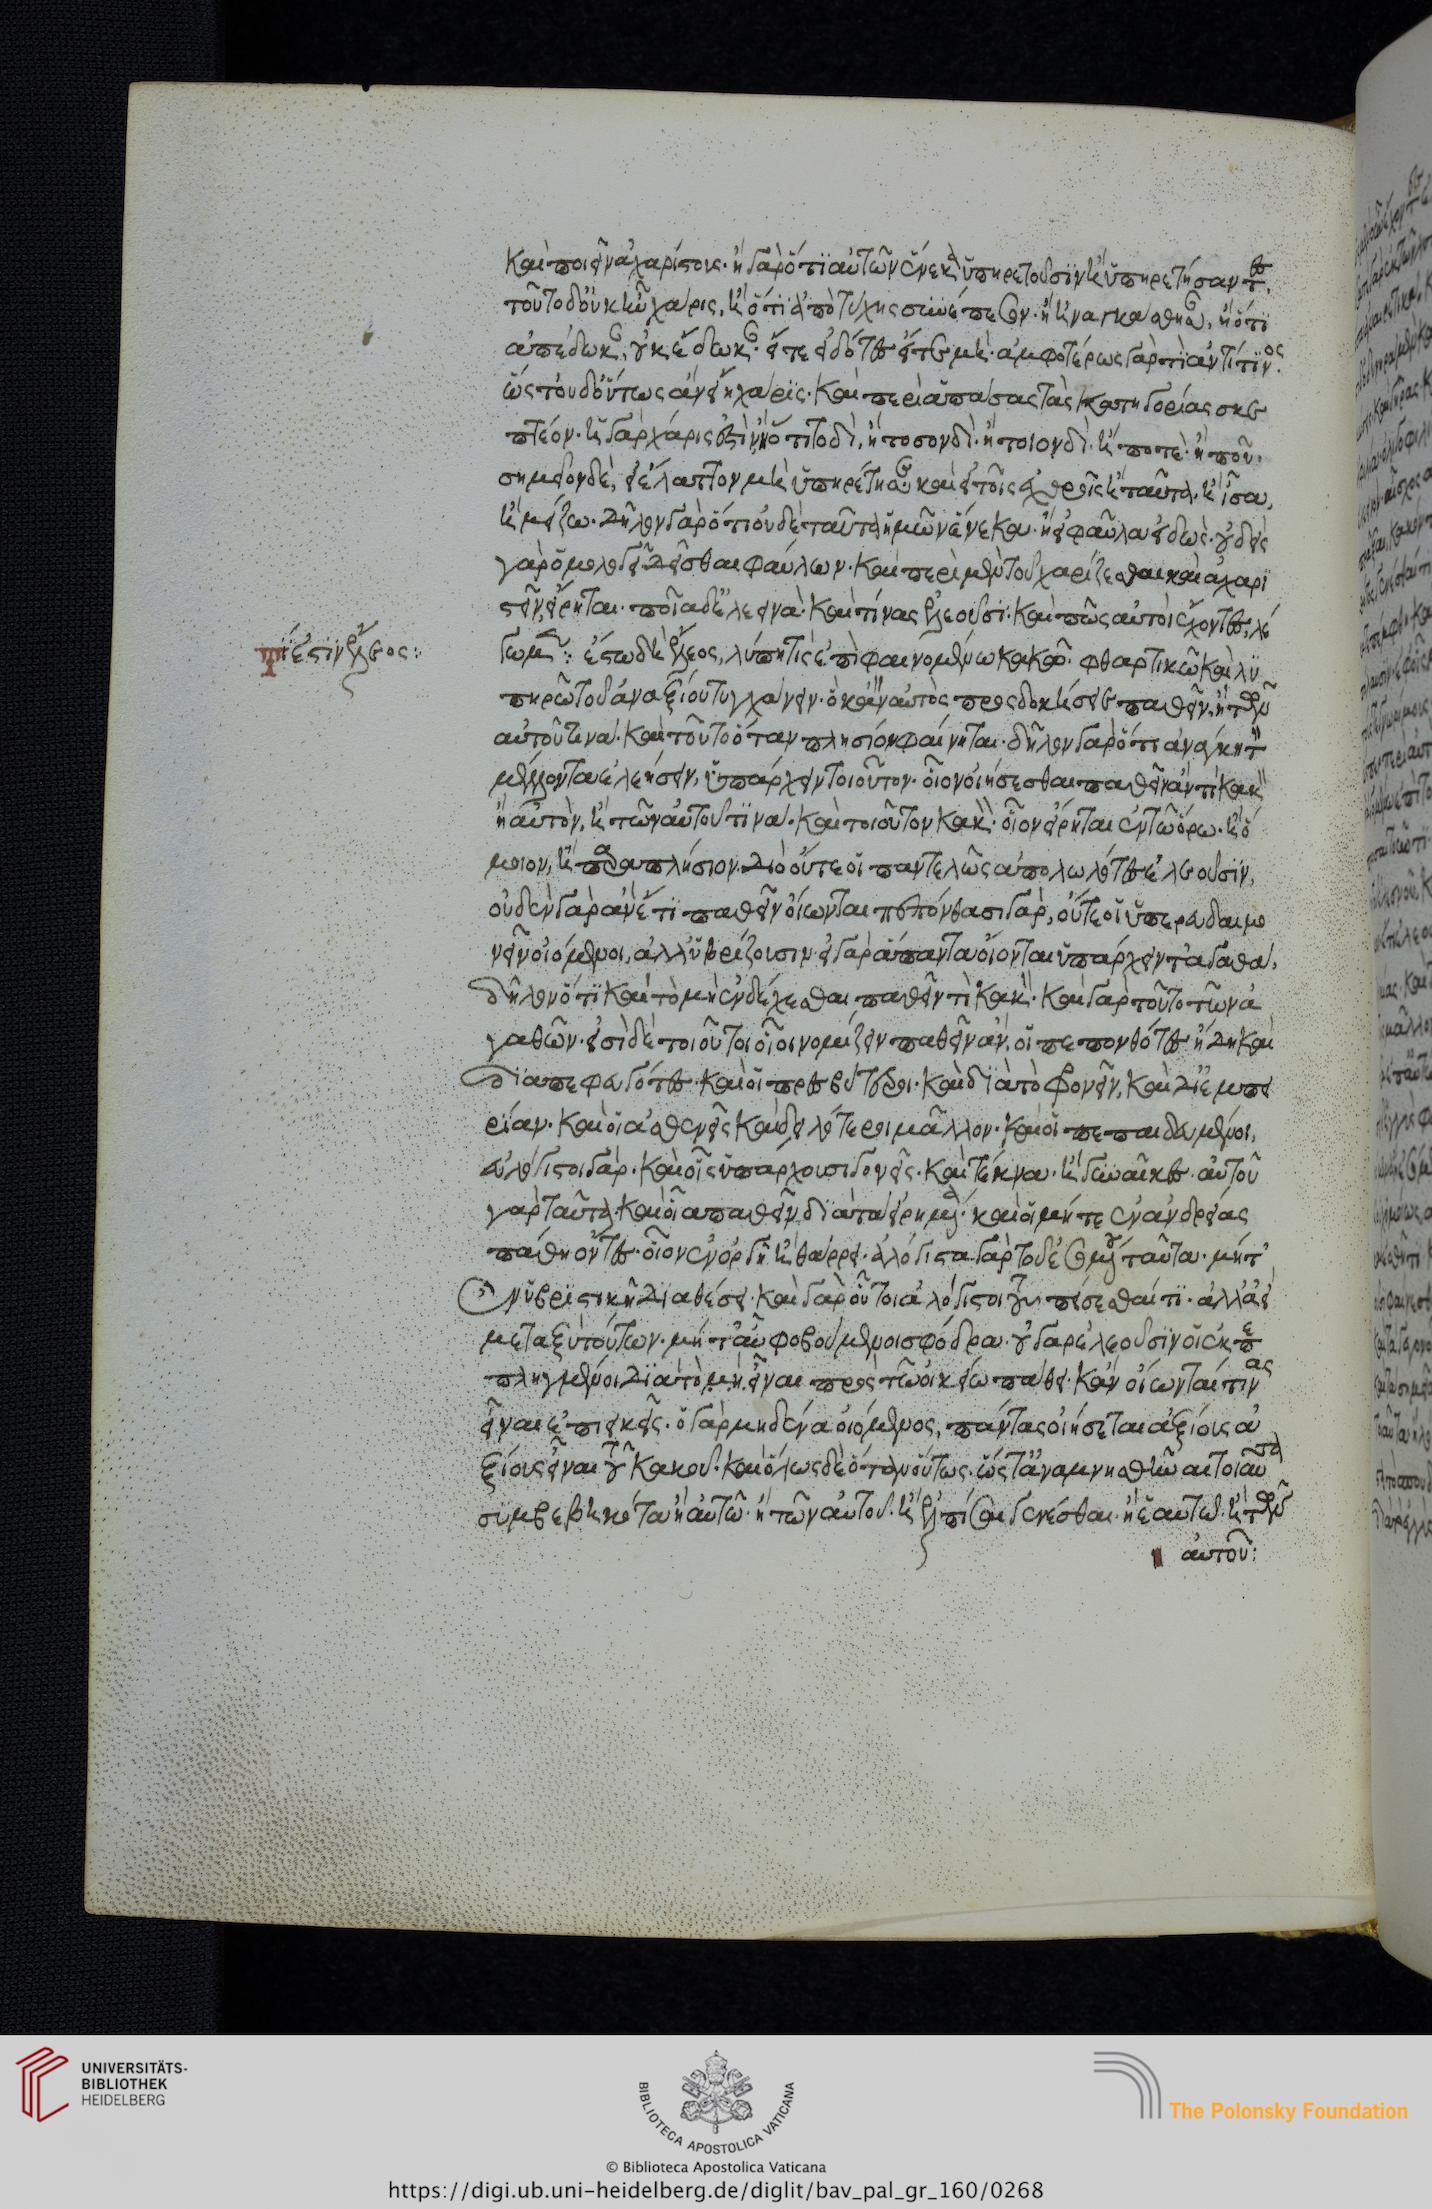 καὶ ποιεῖν ἀχαρίστους· ἢ γὰρ ὅτι αὑτῶν ἕνεκα ὑπηρετοῦσιν ἢ ὑπηρέτησαν
τοῦτο δ' οὐκ ἦν χάρις, ἢ ὅτι ἀπὸ τύχης συνέπεσεν· ἢ ἠναγκάσθησαν, ἢ ὅτι
ἀπέδωκαν, οὐκ ἔδωκαν· εἴτε εἰδότες εἴτε μή· ἀμφοτέρως γὰρ τὶ ἀντί τινος·
ὥστ' οὐδ' οὕτως ἂν εἴη χάρις· καὶ περὶ ἁπάσας τὰς κατηγορίας σκε
πτέον· ἡ γὰρ χάρις ἐστὶν ἢ ὅτι τοδὶ, ἢ τοσονδὶ· ἢ τοιονδὶ· ἢ ποτὲ· ἢ ποῦ·
σημεῖον δὲ, εἰ ἔλαττον μὴ ὑπηρέτησαν καὶ εἰ τοῖς ἐχθροῖς ἢ ταὐτὰ· ἢ ἴσα,
ἢ μείζω· δῆλον γὰρ ὅτι οὐδὲ ταῦτα ἡμῶν ἕνεκα· ἢ εἰ φαῦλα εἰδώς· οὐδεὶς
γὰρ ὁμολογεῖ δεῖσθαι φαύλων· καὶ περὶ μὲν τοῦ χαρίζεσθαι καὶ ἀχαρι
στεῖν, εἴρηται· ποῖα δ' ἐλεεινὰ· καὶ τίνας ἐλεοῦσι· καὶ πῶς αὐτοὶ ἔχοντες, λέ
τί ἐστιν ἔλεος:
γωμεν: ἔστω δὴ ἔλεος, λύπη τὶς ἐπὶ φαινομένω κακῶ· φθαρτικῶ καὶ λυ
πηρῶ τοῦ ἀναξίου τυγχάνειν· ὃ κἂν αὐτὸς προσδοκήσειε παθεῖν, ἢ τῶν
αὐτοῦ τινα· καὶ τοῦτο ὅταν πλησίον φαίνηται· δῆλον γὰρ ὅτι ἀνάγκη τὸν
μέλλοντα ἐλεήσειν, ὑπάρχειν τοιοῦτον· οἷον οἰήσεσθαι παθεῖν ἄν τι κακὸν
ἢ αὐτὸν, ἢ τῶν αὐτοῦ τινα· καὶ τοιοῦτον κακὸν· οἷον εἴρηται ἐν τῶ ὅρω· ἢ ὅ
μοιον, ἢ παραπλήσιον· διὸ οὔτε οἱ παντελῶς ἀπολωλότες ἐλεοῦσιν,
οὐδὲν γὰρ ἂν ἔτι παθεῖν οἴωνται πεπόνθασι γὰρ, οὔτε οἱ ὑπερευδαιμο
νεῖν οἰόμενοι, ἀλλ' ὑβρίζουσιν· εἰ γὰρ ἅπαντα οἴονται ὑπάρχειν τἀγαθά,
δῆλον ὅτι καὶ τὸ μὴ ἐνδέχεσθαι παθεῖν τὶ κακὸν· καὶ γὰρ τοῦτο τῶν ἀ
γαθῶν· εἰσὶ δὲ τοιοῦτοι οἷοι νομίζειν παθεῖν ἄν, οἵ τε πεπονθότες ἤδη καὶ
διαπεφευγότες· καὶ οἱ πρεσβύτεροι· καὶ διὰ τὸ φρονεῖν, καὶ δι' ἐμπει
ρίαν· καὶ οἱ ἀσθενεῖς καὶ δειλότεροι μᾶλλον· καὶ οἱ πεπαιδευμένοι,
εὐλόγιστοι γάρ· καὶ οἷς ὑπάρχουσι γονεῖς· καὶ τέκνα· ἢ γυναῖκες· αὐτοῦ
γὰρ ταῦτα· καὶ οἷα παθεῖν διὰ τὰ εἰρημένα· καὶ οἱ μήτε ἐν ἀνδρείας
πάθη ὄντες· οἷον ἐν ὀργῆ ἢ θάρρει· ἀλόγιστα γὰρ τοῦ ἐσομένου ταῦτα· μήτ'
ἐν ὑβριστικῆ διαθέσει· καὶ γὰρ οὗτοι ἀλόγιστοι τοῦ πείσεσθαί τι· ἀλλ' οἱ
μεταξὺ τούτων· μήτ' αὖ φοβούμενοι σφόδρα· οὐ γὰρ ἐλεοῦσιν οἱ ἐκπε
πληγμένοι διὰ τὸ μὴ εἶναι πρὸς τῶ οἰκείω πάθει· κἂν οἴωνταί τινας
εἶναι ἐπιεικεῖς· ὁ γὰρ μηδένα οἰόμενος, πάντας οἰήσεται ἀξίους ἀ
ξίους εἶναι τοῦ κακοῦ· καὶ ὅλως δὲ ὅταν οὕτως· ὥστ' ἀναμνησθῆναι τοιαῦτα
συμβεβηκότα ἢ αὐτῶ· ἢ τῶν αὐτοῦ· ἢ ἐλπίσαι γενέσθαι· ἢ ἑαυτῶ· ἢ τῶν
αὐτοῦ:
UNIVERSITÄTS-
BIBLIOTHEK
HEIDELBERG
BIBLIOTECA APOSTOLICA VATICANA
The Polonsky Foundation
© Biblioteca Apostolica Vaticana
https://digi.ub.uni-heidelberg.de/diglit/bav_pal_gr_160/0268